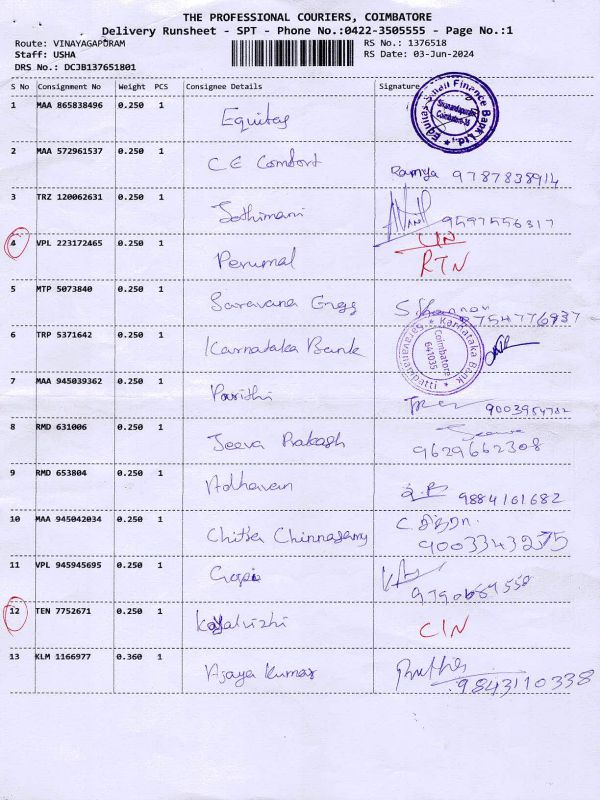 THE PROFESSIONAL COURIERS, COIMBATORE
Delivery Runsheet - SPT - Phone No.:0422-3505555 - Page No.:1
Route: VINAYAGAPURAM RS No.: 1376518
Staff: USHA RS Date: 03-Jun-2024
DRS No.: DCJB137651801
S No Consignment No Weight PCS Consignee Details Signature
1 MAA 865838496 0.250 1 Equitas Equitas Small Finance Bank Ltd.
2 MAA 572961537 0.250 1 C E Comfort Ramya 9787838914
3 TRZ 120062631 0.250 1 Jothimani 9597556317
4 VPL 223172465 0.250 1 Perumal CIN
RTN
5 MTP 5073840 0.250 1 Saravana Engg 8754776937
6 TRP 5371642 0.250 1 Karnataka Bank Karnataka Bank Saravanampatti Coimbatore 641035
7 MAA 945039362 0.250 1 Parithi
8 RMD 631006 0.250 1 Jeeva Prakash 9629662308
9 RMD 653804 0.250 1 Adhavan 9884161682
10 MAA 945042034 0.250 1 Chitra Chinnasamy
11 VPL 945945695 0.250 1
12 TEN 7752671 0.250 1 Kayalvizhi CIN
13 KLM 1166977 0.360 1 Ajaya Kumar 9843110338